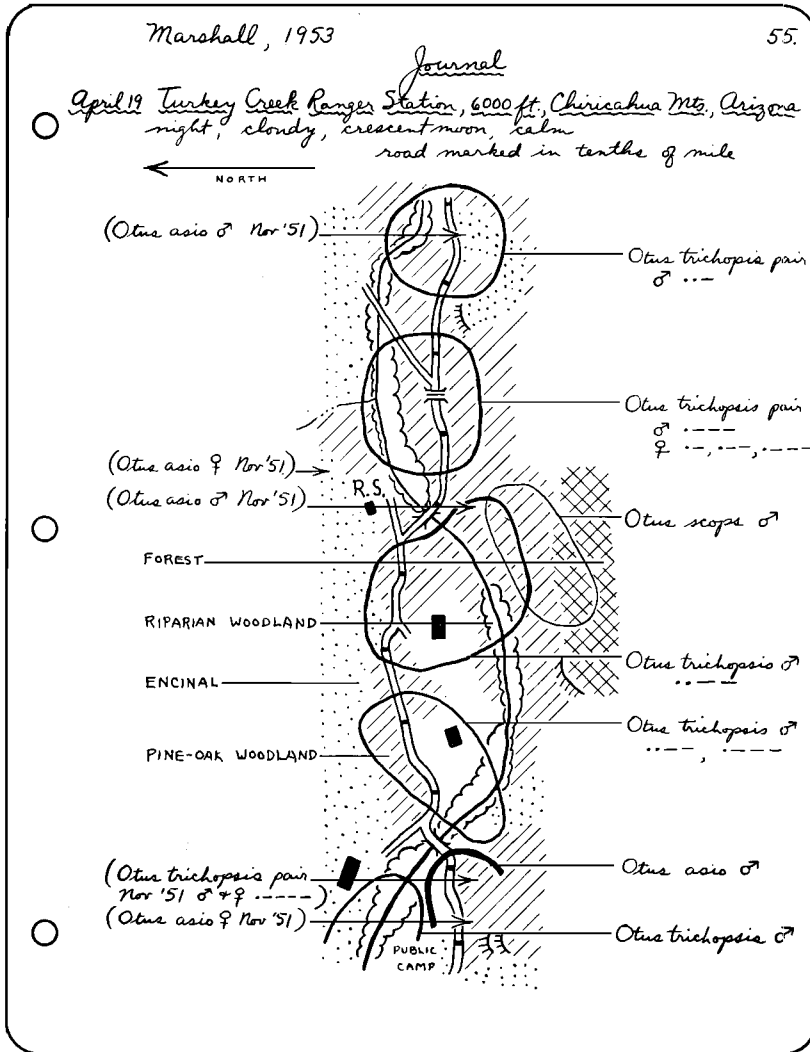 Marshall, 1953
55.
Journal
April 19 Turkey Creek Ranger Station, 6000 ft., Chiricahua Mts., Arizona
night, cloudy, crescent moon, calm
road marked in tenths of mile
NORTH
(Otus asio ♂ Nov '51)
Otus trichopis pair
♂ ··–
Otus trichopsis pair
♂ ·–––
♀ ·–, ·––, ·–––
(Otus asio ♀ Nov '51)
R.S.
(Otus asio ♂ Nov '51)
Otus scops ♂
FOREST
RIPARIAN WOODLAND
Otus trichopsis ♂
··––
ENCINAL
Otus trichopsis ♂
··––, ·–––
PINE-OAK WOODLAND
Otus asio ♂
(Otus trichopsis pair
Nov '51 ♂ + ♀ ·––––)
(Otus asio ♀ Nov '51)
Otus trichopsis ♂
PUBLIC
CAMP